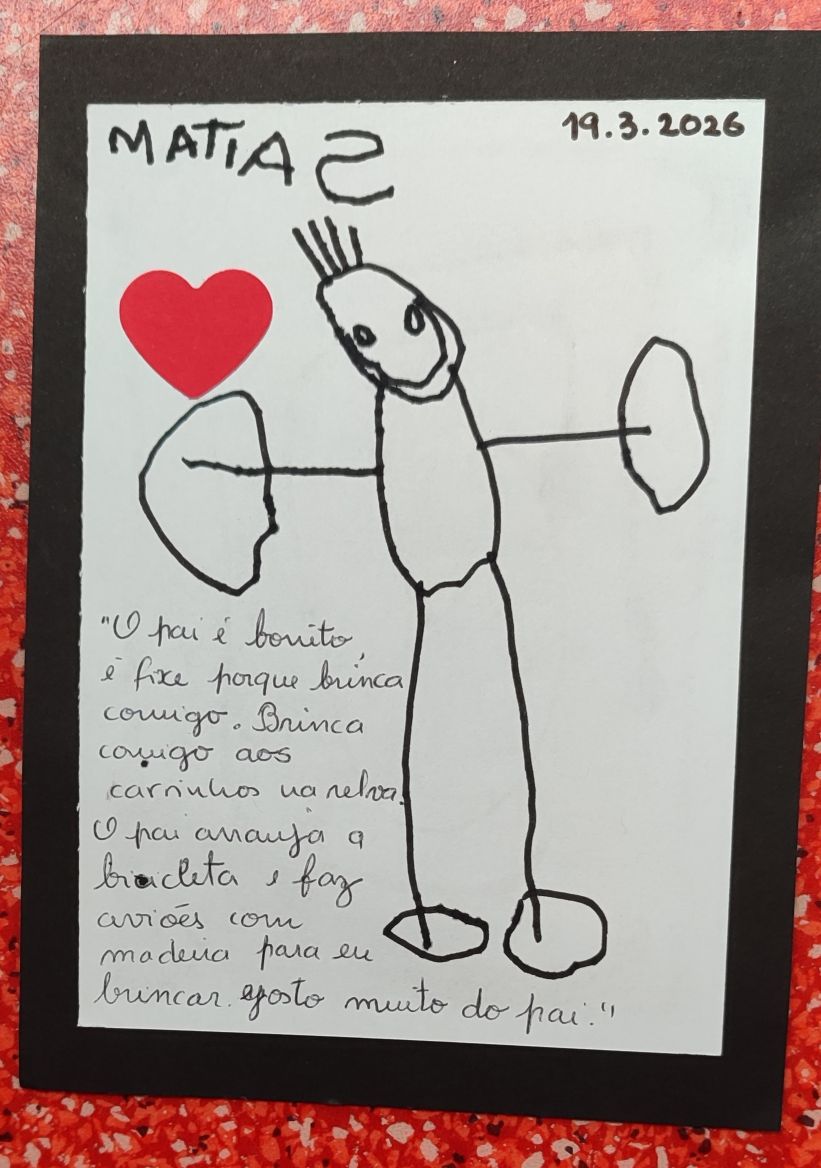 MATIAS
19.3.2026
"O pai é bonito,
é fixe porque brinca
comigo. Brinca
comigo aos
carrinhos na relva.
O pai arranja a
bicicleta e faz
aviões com
madeira para eu
brincar. gosto muito do pai."